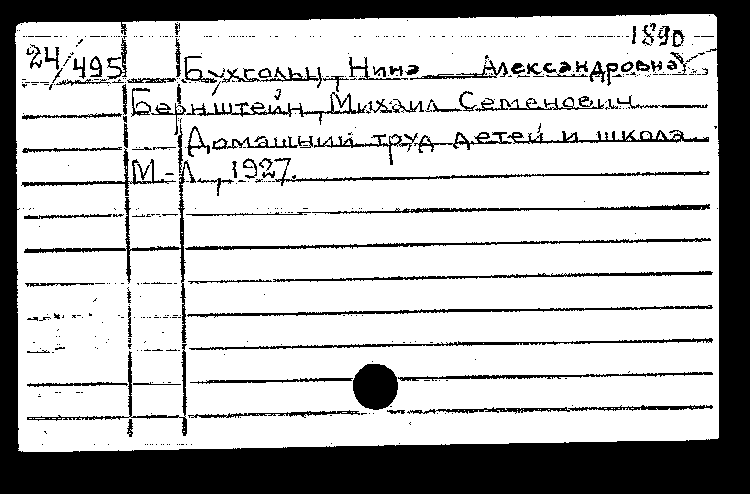 1890
24/495 Бухгольц, Нина Александровна,
Бернштейн, Михаил Семенович
Домашний труд детей и школа.
М.-Л., 1927.